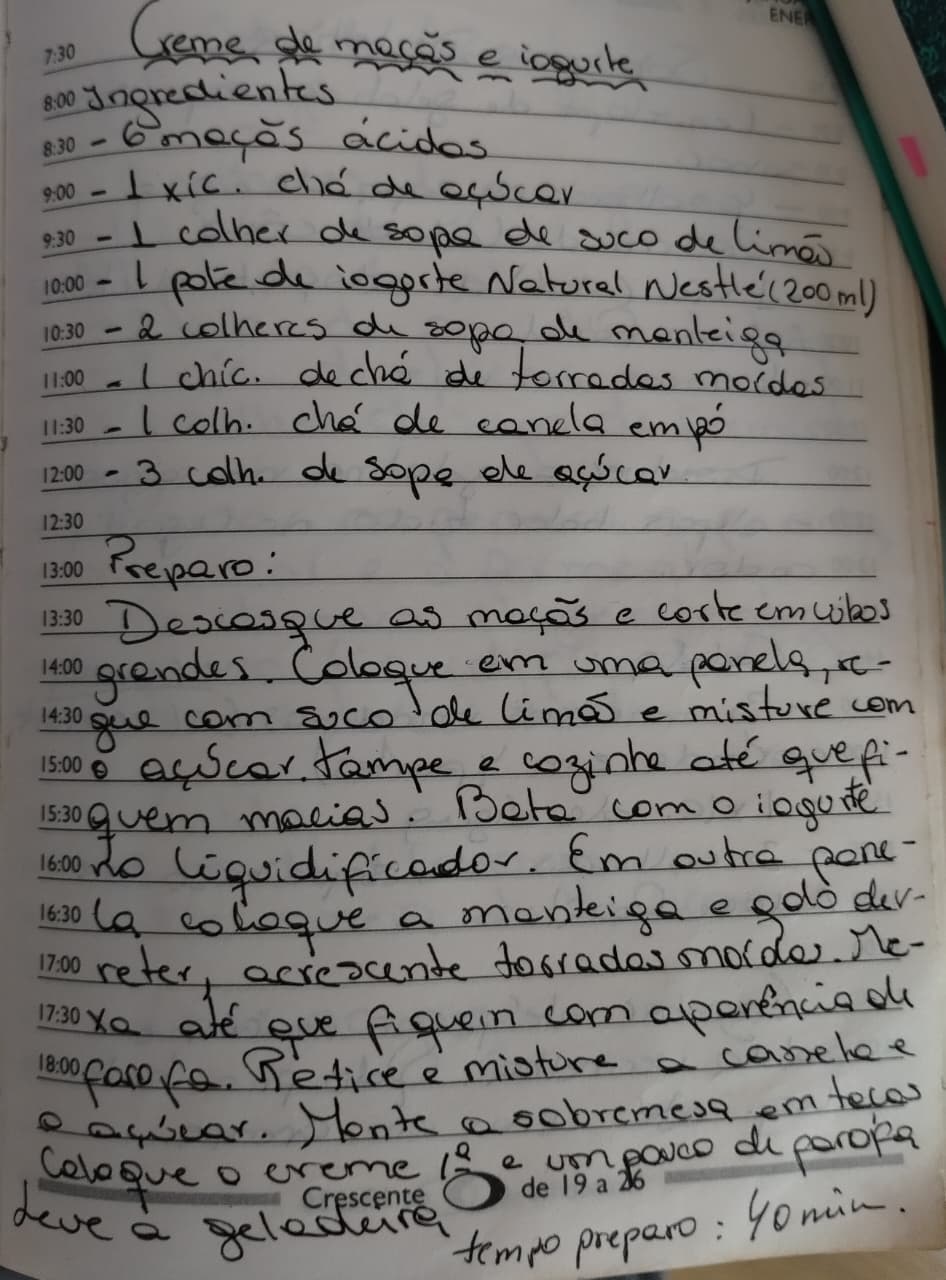 ENER
7:30 Creme de maçãs e iogurte
8:00 Ingredientes
8:30 - 6 maçãs ácidas
9:00 - 1 xíc. chá de açúcar
9:30 - 1 colher de sopa de suco de limão
10:00 - 1 pote de iogorte Natural Nestlé (200ml)
10:30 - 2 colheres de sopa de manteiga
11:00 - 1 chíc. de chá de torradas moídas
11:30 - 1 colh. chá de canela em pó
12:00 - 3 colh. de sopa de açúcar
12:30
13:00 Preparo:
13:30 Descasque as maçãs e corte em cubos
14:00 grandes. Coloque em uma panela, re-
14:30 gue com suco de limão e misture com
15:00 o açúcar. tampe e cozinhe até que fi-
15:30 quem macias. Bata com o iogurte
16:00 no liquidificador. Em outra pane-
16:30 la coloque a manteiga e qdo der-
17:00 reter, acrescente torradas moídas. Me-
17:30 xa até que fiquem com aparência de
18:00 farofa. Retire e misture a canela e
o açúcar. Monte a sobremesa em taças
Coloque o creme 1º e um pouco de farofa
Crescente de 19 a 26
Leve a geladeira
tempo preparo: 40 min.